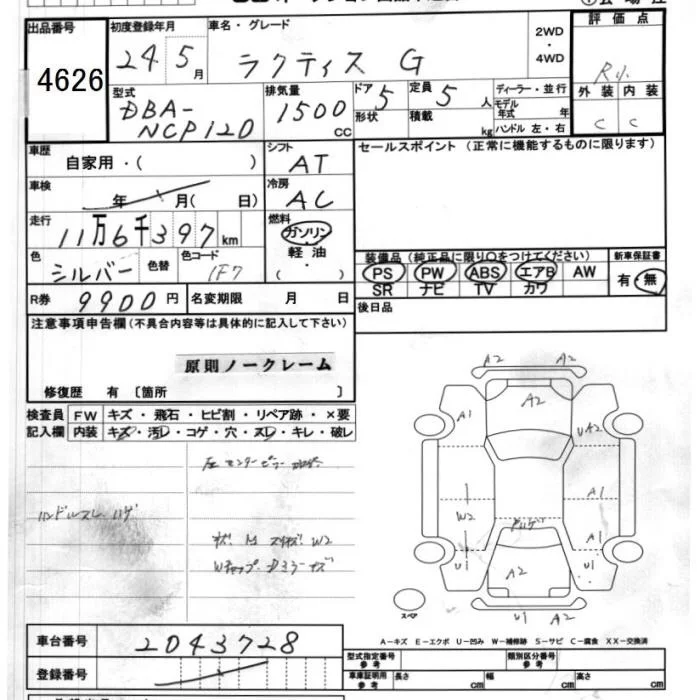 出品番号 初度登録年月 車名・グレード 2WD・4WD 評価点
4626 24 5月 ラクティス G R
外装 内装
C C
型式 排気量 ドア 定員 ディーラー・並行
DBA-NCP120 1500cc 5 5人 モデル年式 年
形状 積載 kg ハンドル 左・右
車歴 自家用・( ) シフト AT セールスポイント (正常に機能するものに限ります)
車検 年 月( 日) 冷房 AC
走行 11万6千397km 燃料 ガソリン・軽油・( )
色 シルバー 色替 色コード 1F7
装備品 (純正品に限り○をつけてください) 新車保証書
PS PW ABS エアB AW 有・無
SR ナビ TV カワ
R券 9900円 名変期限 月 日 後日品
注意事項申告欄(不具合内容等は具体的に記入して下さい)
原則ノークレーム
修復歴 有 〔箇所 〕
検査員 FW キズ・飛石・ヒビ割・リペア跡・×要
記入欄 内装 キズ・汚レ・コゲ・穴・スレ・キレ・破レ
左センターピラー
ハンドルスレ ハゲ
W2
A2 A2
A1 A2 UA2
W2 A1
A1
U1 A2 U1
U1 A2
スペア
A-キズ E-エクボ U-凹み W-補修跡 S-サビ C-腐食 XX-交換済
車台番号 2043728
登録番号
型式指定番号 参考 類別区分番号 参考
車庫証明用 参考 長さ cm 幅 cm 高さ cm